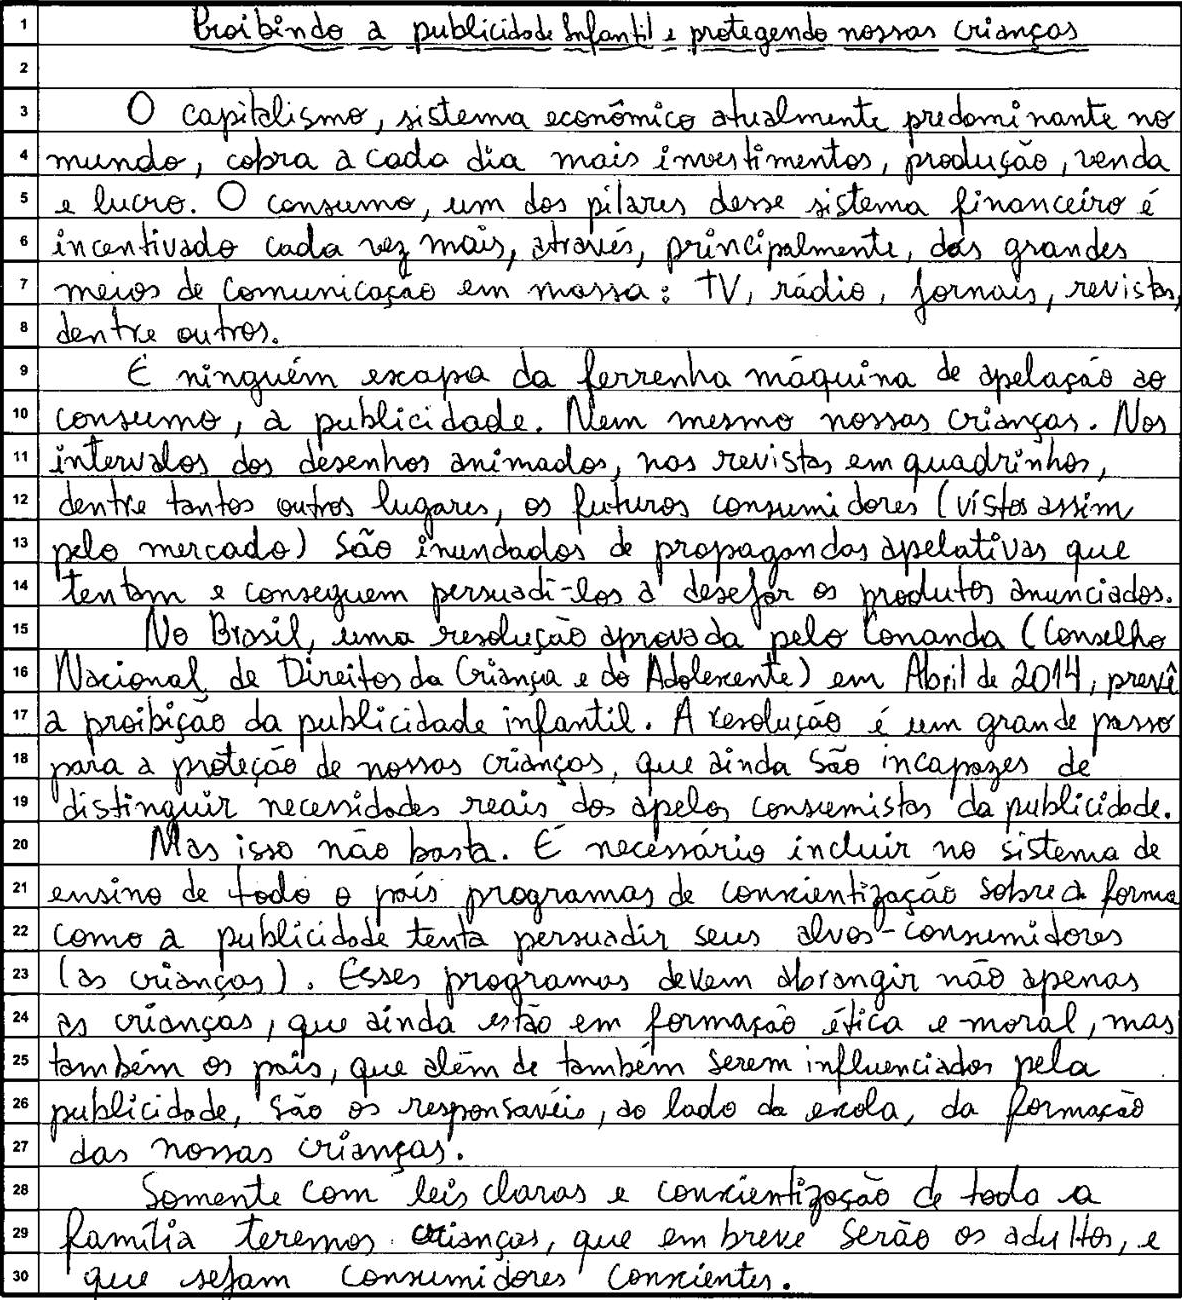 1 Proibindo a publicidade Infantil e protegendo nossas crianças
2
3 O capitalismo, sistema econômico atualmente predominante no
4 mundo, cobra a cada dia mais investimentos, produção, venda
5 e lucro. O consumo, um dos pilares desse sistema financeiro é
6 incentivado cada vez mais, através, principalmente, das grandes
7 meios de comunicação em massa: TV, rádio, jornais, revistas,
8 dentre outros.
9 E ninguém escapa da ferrenha máquina de apelação ao
10 consumo, a publicidade. Nem mesmo nossas crianças. Nos
11 intervalos dos desenhos animados, nas revistas em quadrinhos,
12 dentre tantos outros lugares, os futuros consumidores (vistos assim
13 pelo mercado) são inundados de propagandas apelativas que
14 tentam e conseguem persuadi-los a desejar os produtos anunciados.
15 No Brasil, uma resolução aprovada pelo Conanda (Conselho
16 Nacional de Direitos da Criança e do Adolescente) em Abril de 2014, prevê
17 a proibição da publicidade infantil. A resolução é um grande passo
18 para a proteção de nossas crianças, que ainda são incapazes de
19 distinguir necessidades reais dos apelos consumistas da publicidade.
20 Mas isso não basta. É necessário incluir no sistema de
21 ensino de todo o país programas de conscientização sobre a forma
22 como a publicidade tenta persuadir seus alvos-consumidores
23 (as crianças). Esses programas devem abrangir não apenas
24 as crianças, que ainda estão em formação ética e moral, mas
25 também os pais, que além de também serem influenciados pela
26 publicidade, são os responsavéis, ao lado da escola, da formação
27 das nossas crianças.
28 Somente com leis claras e conscientização de toda a
29 família teremos crianças, que em breve serão os adultos, e
30 que sejam consumidores conscientes.